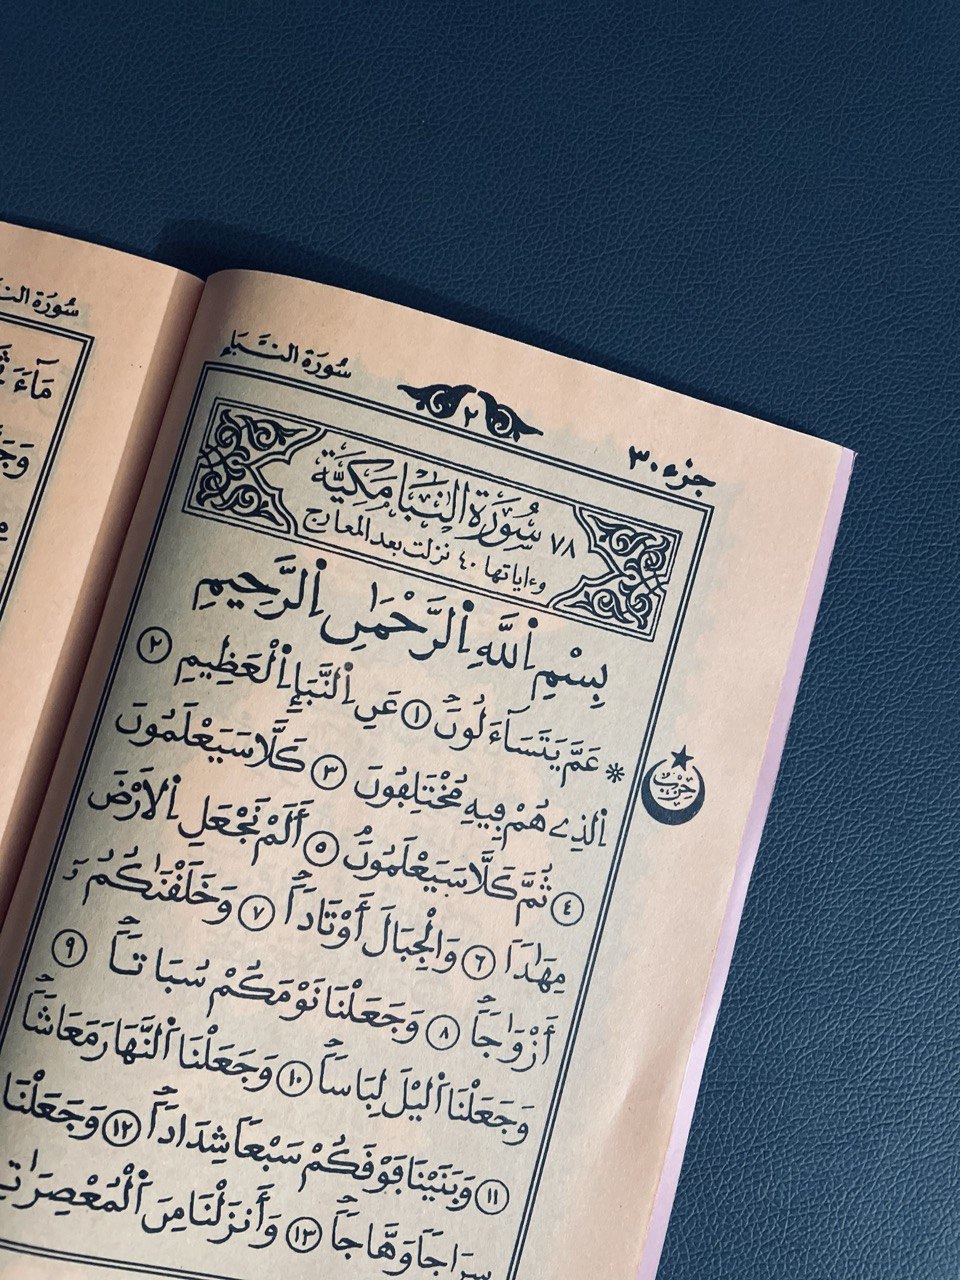 جزء ٣٠
٢
سُورَةُ النَّبَإِ
٧٨ سُورَةُ النَّبَإ مَكِيَّة
وءاياتها ٤٠ نزلت بعد المعارج
بِسْمِ اِ۬للَّهِ اِ۬لرَّحْمَٰنِ اِ۬لرَّحِيمِ
* عَمَّ يَتَسَآءَلُونَۖ ١ عَنِ اِ۬لنَّبَإِ اِ۬لْعَظِيمِ ٢
حزب
اِ۬لذِے هُمْ فِيهِ مُخْتَلِفُونَ ٣ كَلَّا سَيَعْلَمُونَ
٤ ثُمَّ كَلَّا سَيَعْلَمُونَۖ ٥ أَلَمْ نَجْعَلِ اِ۬لَارْضَ
مِهَٰداٗ ٦ وَالْجِبَالَ أَوْتَاداٗۖ ٧ وَخَلَقْنَٰكُمُۥٓ
أَزْوَٰجاٗۖ ٨ وَجَعَلْنَا نَوْمَكُمْ سُبَاتاٗۖ ٩
وَجَعَلْنَا اَ۬ليْلَ لِبَاساٗۖ ١٠ وَجَعَلْنَا اَ۬لنَّهَارَ مَعَاشاٗۖ
١١ وَبَنَيْنَا فَوْقَكُمْ سَبْعاٗ شِدَاداٗۖ ١٢ وَجَعَلْنَا
سِرَاجاٗ وَهَّاجاٗۖ ١٣ وَأَنزَلْنَا مِنَ اَ۬لْمُعْصِرَٰتِ
سُورَةُ
مَآءٗ